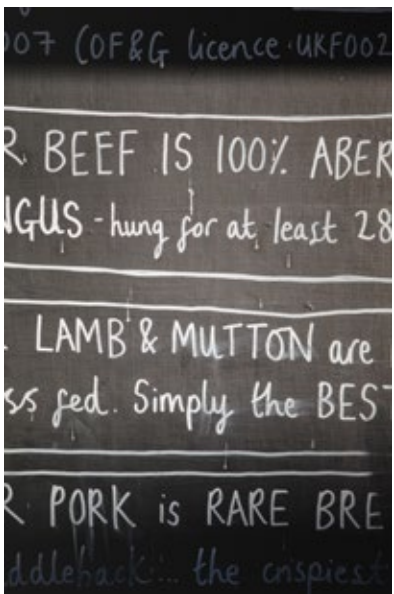 007 (OF&G licence UKF002
R BEEF IS 100% ABER
NGUS - hung for at least 28
LAMB & MUTTON are
ss fed. Simply the BEST
R PORK is RARE BRE
ddleback... the crispiest